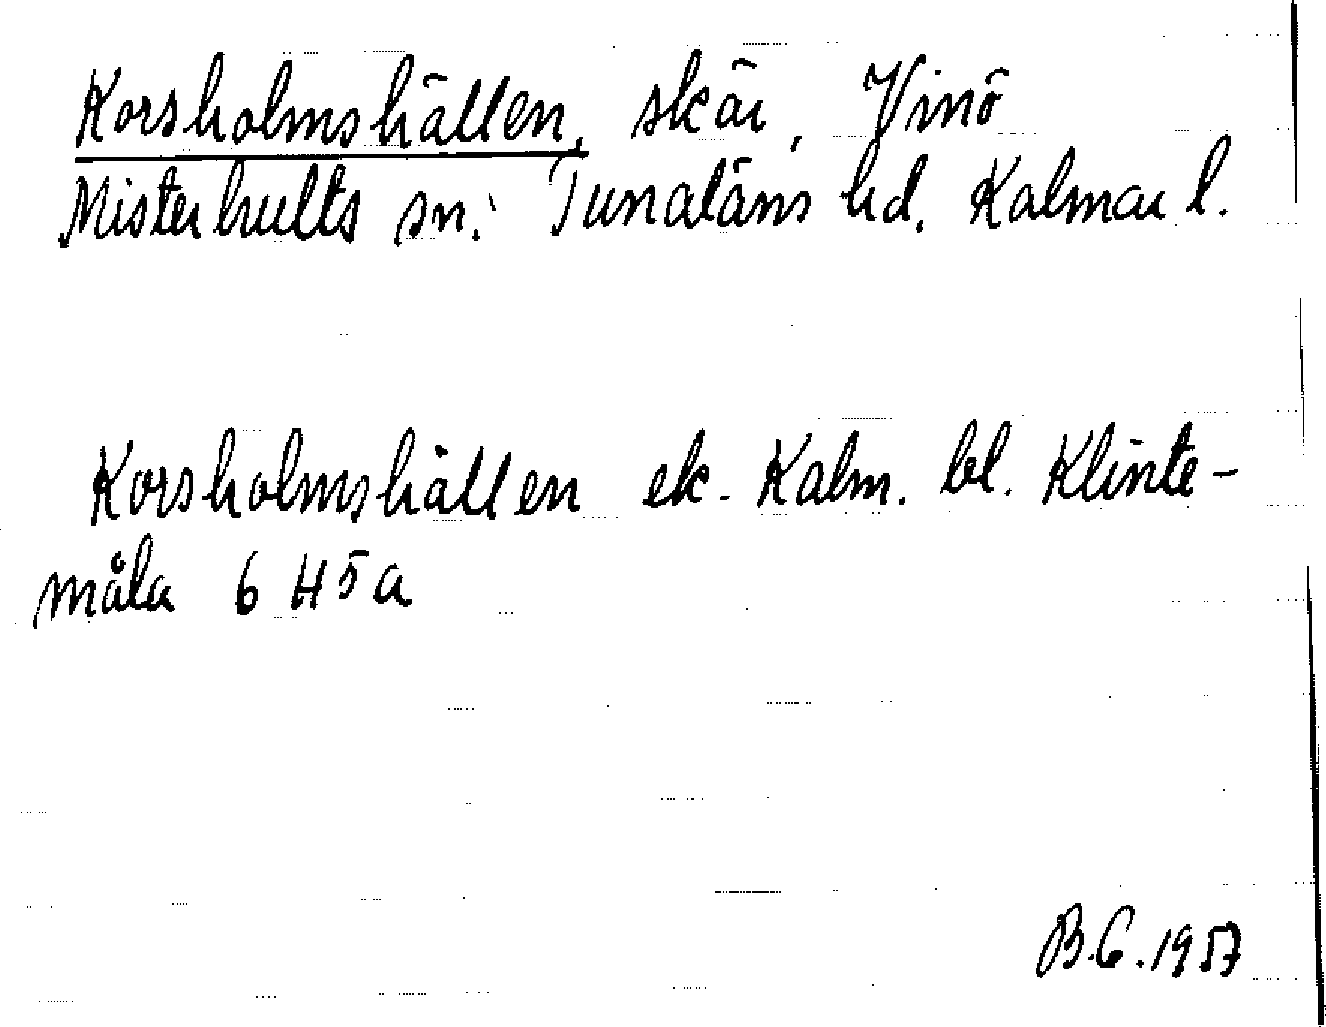 Korsholmshällen, skär, Vinö
Misterhults sn. Tunaläns hd. Kalmar l.
Korsholmshällen ek. Kalm. bl. Klinte-
måla 6 H 5 a
B.G. 1957